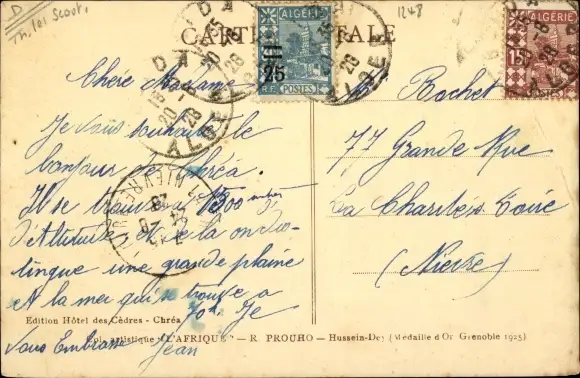 D
Th. les Scouts
1248
CARTE POSTALE
ALGÉRIE
25
POSTES
ALGÉRIE
15
POSTES
BLIDA
ALGER
20-1
28
Chère Madame
Je vous souhaite le
bonjour de Chréa.
Il se trouve à 1500 mètres
d'Altitude et de la on dis-
tingue une grande plaine
et la mer qui se trouve a
70k. Je
vous Embrasse Jean
Me Rochet
77 Grande Rue
La Charité s Loire
(Nièvre)
NIEVRE
Edition Hôtel des Cèdres - Chréa
Epr. artistique "L'AFRIQUE" - R. PROUHO - Hussein-Dey (Médaille d'Or Grenoble 1925)